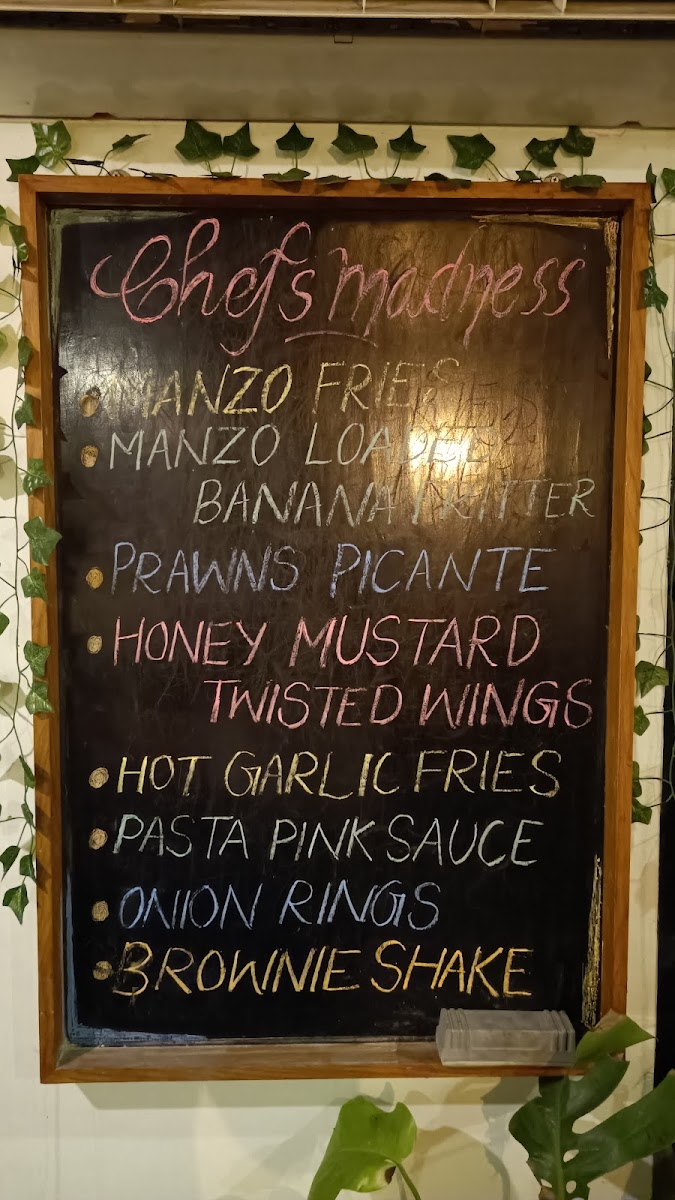 Chef's madness
MANZO FRIES
MANZO LOADED
BANANA FRITTER
PRAWNS PICANTE
HONEY MUSTARD
TWISTED WINGS
HOT GARLIC FRIES
PASTA PINK SAUCE
ONION RINGS
BROWNIE SHAKE